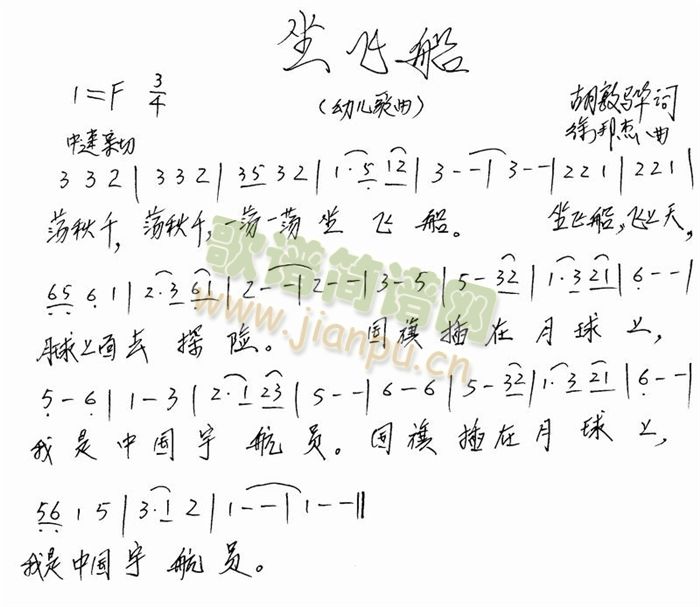 坐飞船
1=F 3/4
(幼儿歌曲)
胡敦骅词
中速亲切
徐邦杰曲
3 3 2 | 3 3 2 | 35 32 | 1·5 12 | 3 - - | 3 - - | 2 2 1 | 2 2 1 |
荡秋千, 荡秋千, 一荡一荡 坐 飞 船。 坐飞船, 飞上天,
65 6 1 | 2·3 61 | 2 - - | 2 - - | 3 - 5 | 5 - 32 | 1·3 21 | 6 - - |
月球上面去 探 险。 国 旗 插 在 月 球 上,
5 - 6 | 1 - 3 | 2·1 23 | 5 - - | 6 - 6 | 5 - 32 | 1·3 21 | 6 - - |
我 是 中 国 宇 航 员。 国 旗 插 在 月 球 上,
56 1 5 | 3·1 2 | 1 - - | 1 - - ‖
我是中国 宇 航 员。
歌谱简谱网
www.jianpu.cn